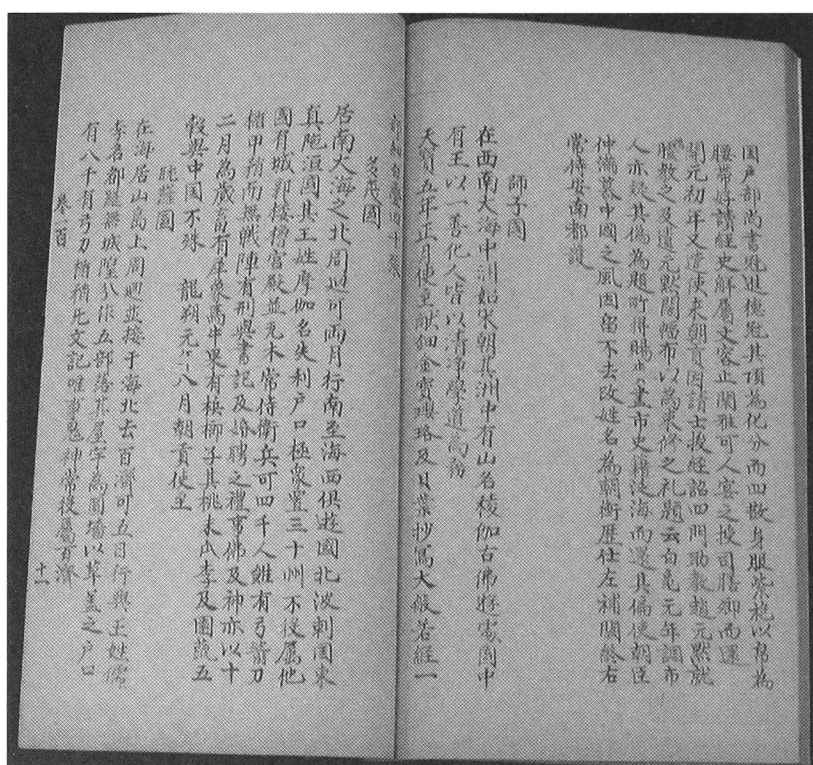 国戶部尚書冠進德冠其頂為化分而四散身服紫袍以帛為
腰帶好讀經史解屬文容止閑雅可人宴之授司膳卿而還
開元初年又遣使來朝貢因請士授經詔四門助敎趙元默就
敎之乃遺元默闊幅布以為束脩之礼題云白龜元年調布
人亦疑其偽為題所得賜盡市史籍泛海而還其偏使朝臣
仲滿慕中國之風因留不去改姓名為朝衡歷仕左補闕終右
常侍安南都護
師子國
在西南大海中洲如宋朝其洲中有山名稜伽古佛遊處國中
有王以一善化人皆以清淨學道為務
天寶五年正月使至献鈿金寶瓔珞及貝葉抄寫大般若經一
部細白㲲四十張
多蔑國
居南大海之北周迴可兩月行南至海西俱遊國北波剌国東
真陁洹國其王姓摩伽名失利户口極衆置三十州不役屬他
國有城郭樓櫓宮殿並瓦木常侍衛兵可四千人雖有弓箭刀
楯甲矟而無戦陣有刑典書記及婚聘之禮事佛及神亦以十
二月為歲畜有犀象馬牛果有梹榔子其桃棗瓜李及園蔬五
穀與中国不殊 龍朔元年八月朝貢使至
躭羅國
在海居山島上周迴並接于海北去百濟可五日行其王姓儒
李名都羅無城隍分作五部落其屋宇為圓墻以草盖之户口
有八千有弓刀楯矟无文記唯事鬼神常役屬百濟
卷一百
十一